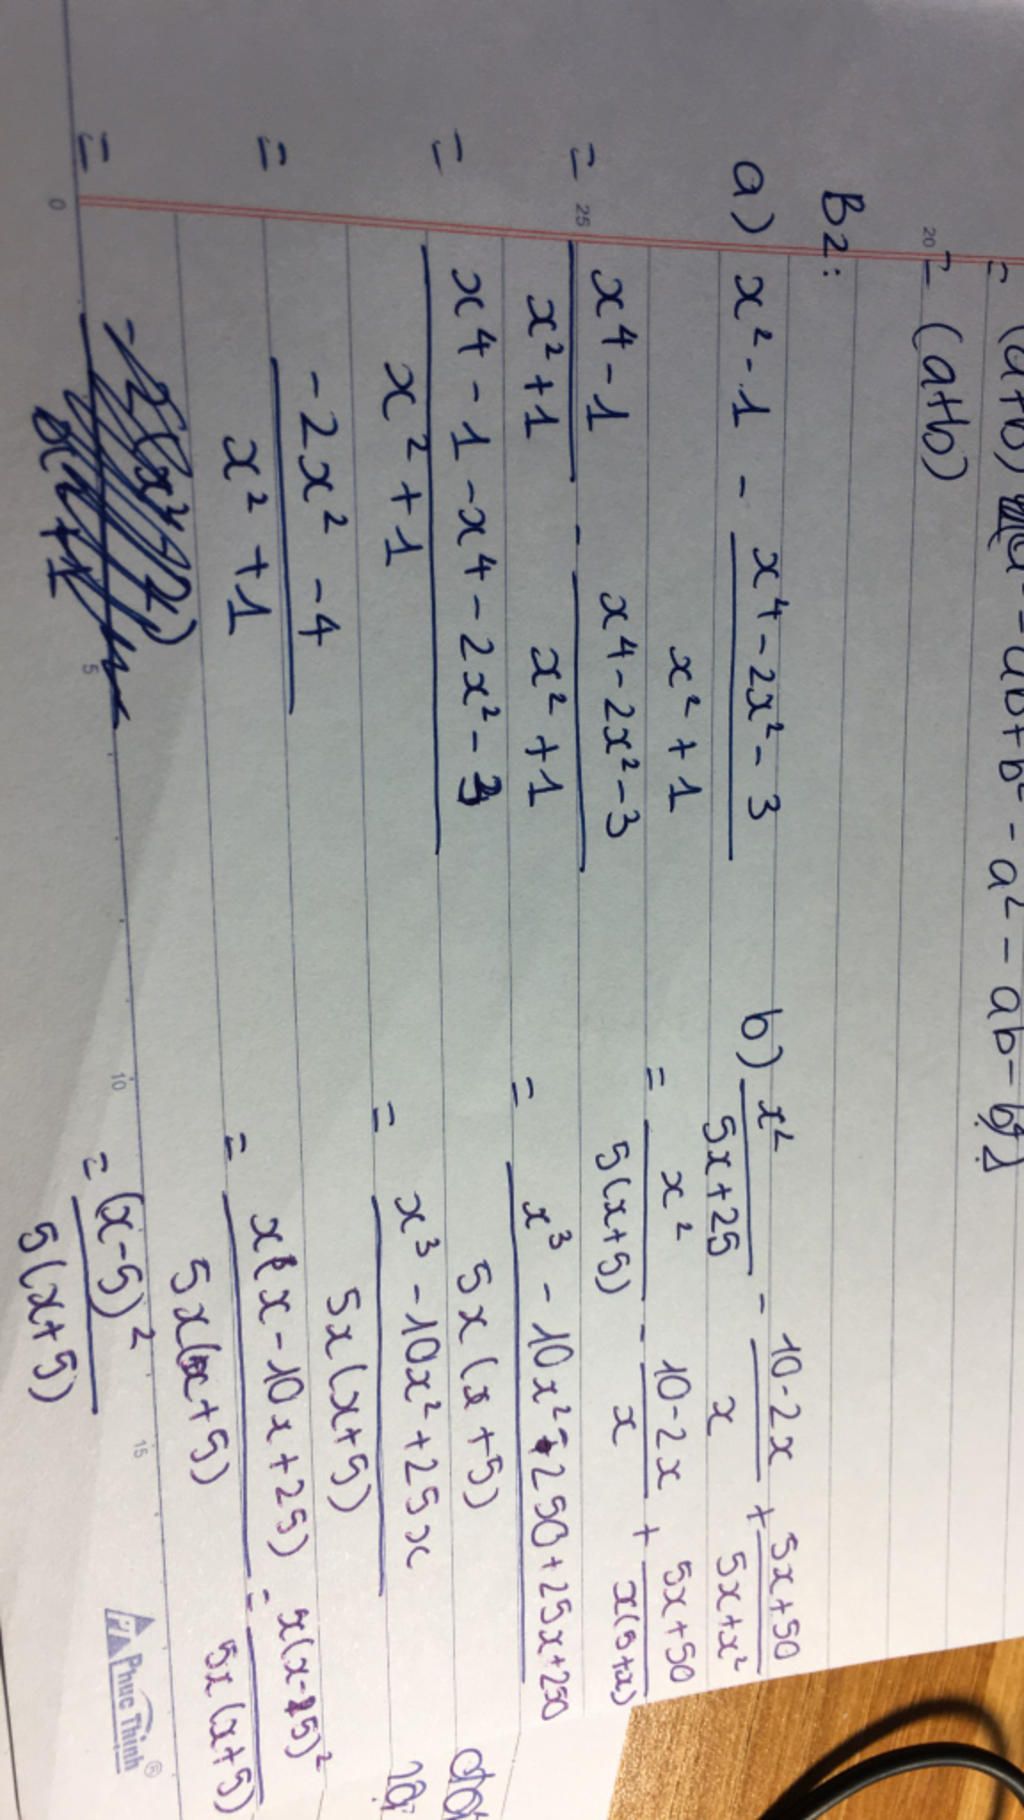 = (a+b)
= (a+b)
B2:
a) x² - 1 - (x⁴ - 2x² - 3)/(x² + 1)
= (x⁴ - 1)/(x² + 1) - (x⁴ - 2x² - 3)/(x² + 1)
= (x⁴ - 1 - x⁴ - 2x² - 3)/(x² + 1)
= (-2x² - 4)/(x² + 1)
=
b) x²/(5x + 25) - (10 - 2x)/x + (5x + 50)/(5x + x²)
= x²/(5(x + 5)) - (10 - 2x)/x + (5x + 50)/(x(5 + x))
= (x³ - 10x² - 250 + 25x + 250)/(5x(x + 5))
= (x³ - 10x² + 25x)/(5x(x + 5))
= x(x - 10x + 25)/(5x(x + 5)) = x(x - 5)²/(5x(x + 5))
= (x - 5)²/(5(x + 5))
20
25
0 5 10 15
Phuc Thinh®